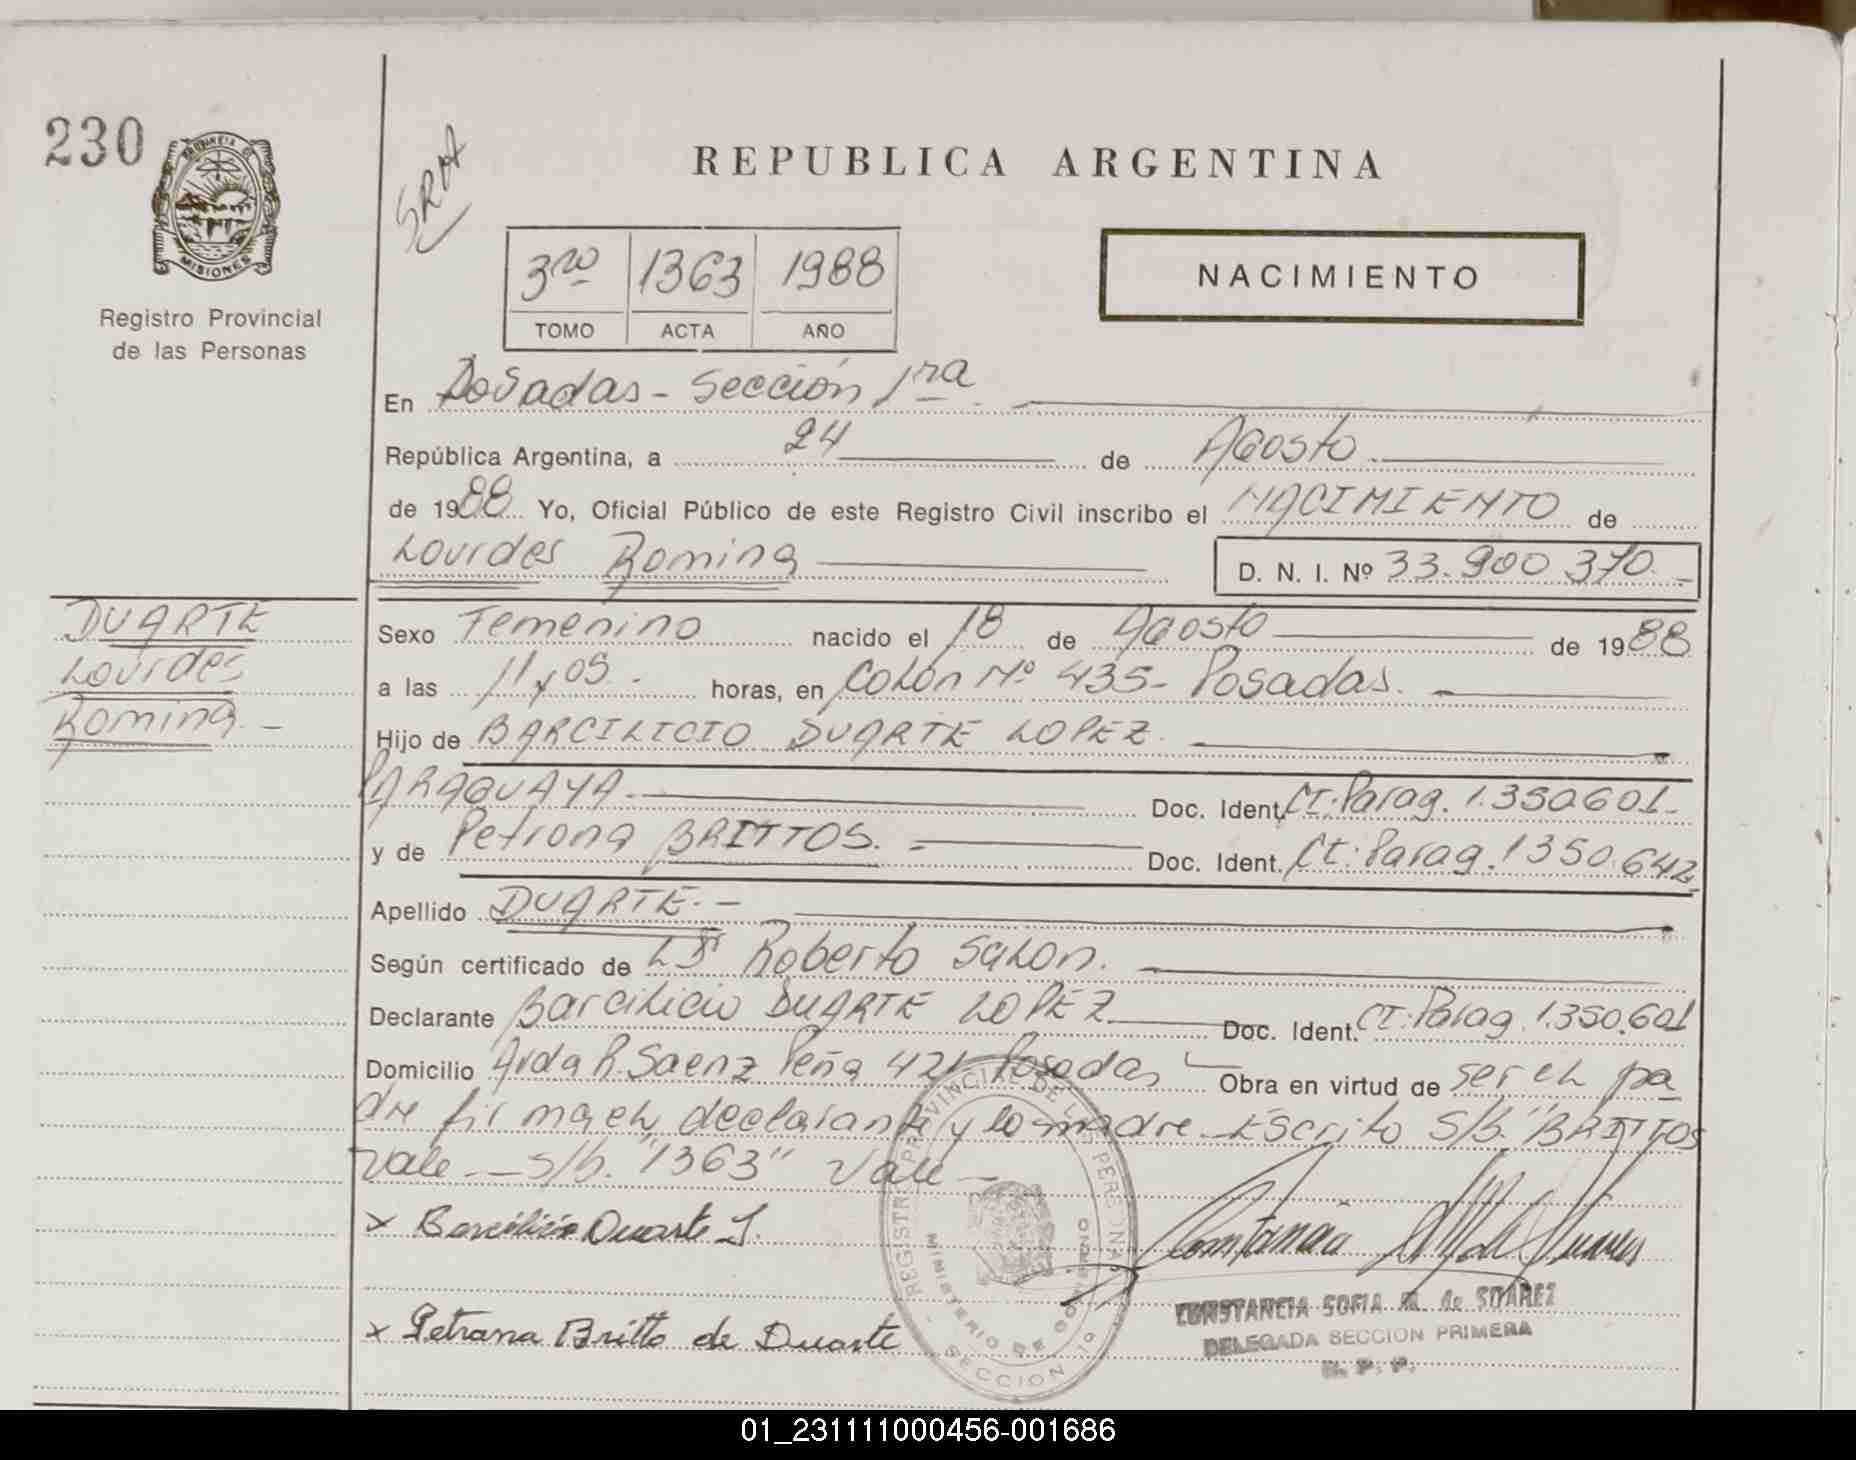 230
PROVINCIA DE
MISIONES
Registro Provincial
de las Personas
REPUBLICA ARGENTINA
3ro 1363 1988
TOMO ACTA AÑO
NACIMIENTO
En Posadas - Sección 1ra
República Argentina, a 24 de Agosto
de 1988 Yo, Oficial Público de este Registro Civil inscribo el NACIMIENTO de
Lourdes Romina D. N. I. Nº 33.900.370.-
DUARTE
Lourdes
Romina.-
Sexo Femenino nacido el 18 de Agosto de 1988
a las 11 y 05. horas, en Colón Nº 435- Posadas.
Hijo de BARCILICIO DUARTE LOPEZ.
PARAGUAYA. Doc. Ident. CI: Parag. 1.350.601-
y de Petrona BRITTOS. Doc. Ident. Ct: Parag. 1350.642
Apellido DUARTE.-
Según certificado de Dr Roberto Salon.
Declarante Barcilicio DUARTE LOPEZ Doc. Ident. CI: Parag. 1.350.601
Domicilio Avda R. Saenz Peña 421 Posadas Obra en virtud de ser el pa
dre firma el declarante y la madre.- Escrito S/b. "BRITTOS
Vale.- S/b. "1363" Vale-
x Barcilicio Duarte L.
x Petrona Britto de Duarte
REGISTRO PROVINCIAL DE LAS PERSONAS
MINISTERIO DE GOBIERNO
SECCION 1º
CONSTANCIA SOFIA M. de SUAREZ
DELEGADA SECCION PRIMERA
R. P. P.
01_231111000456-001686